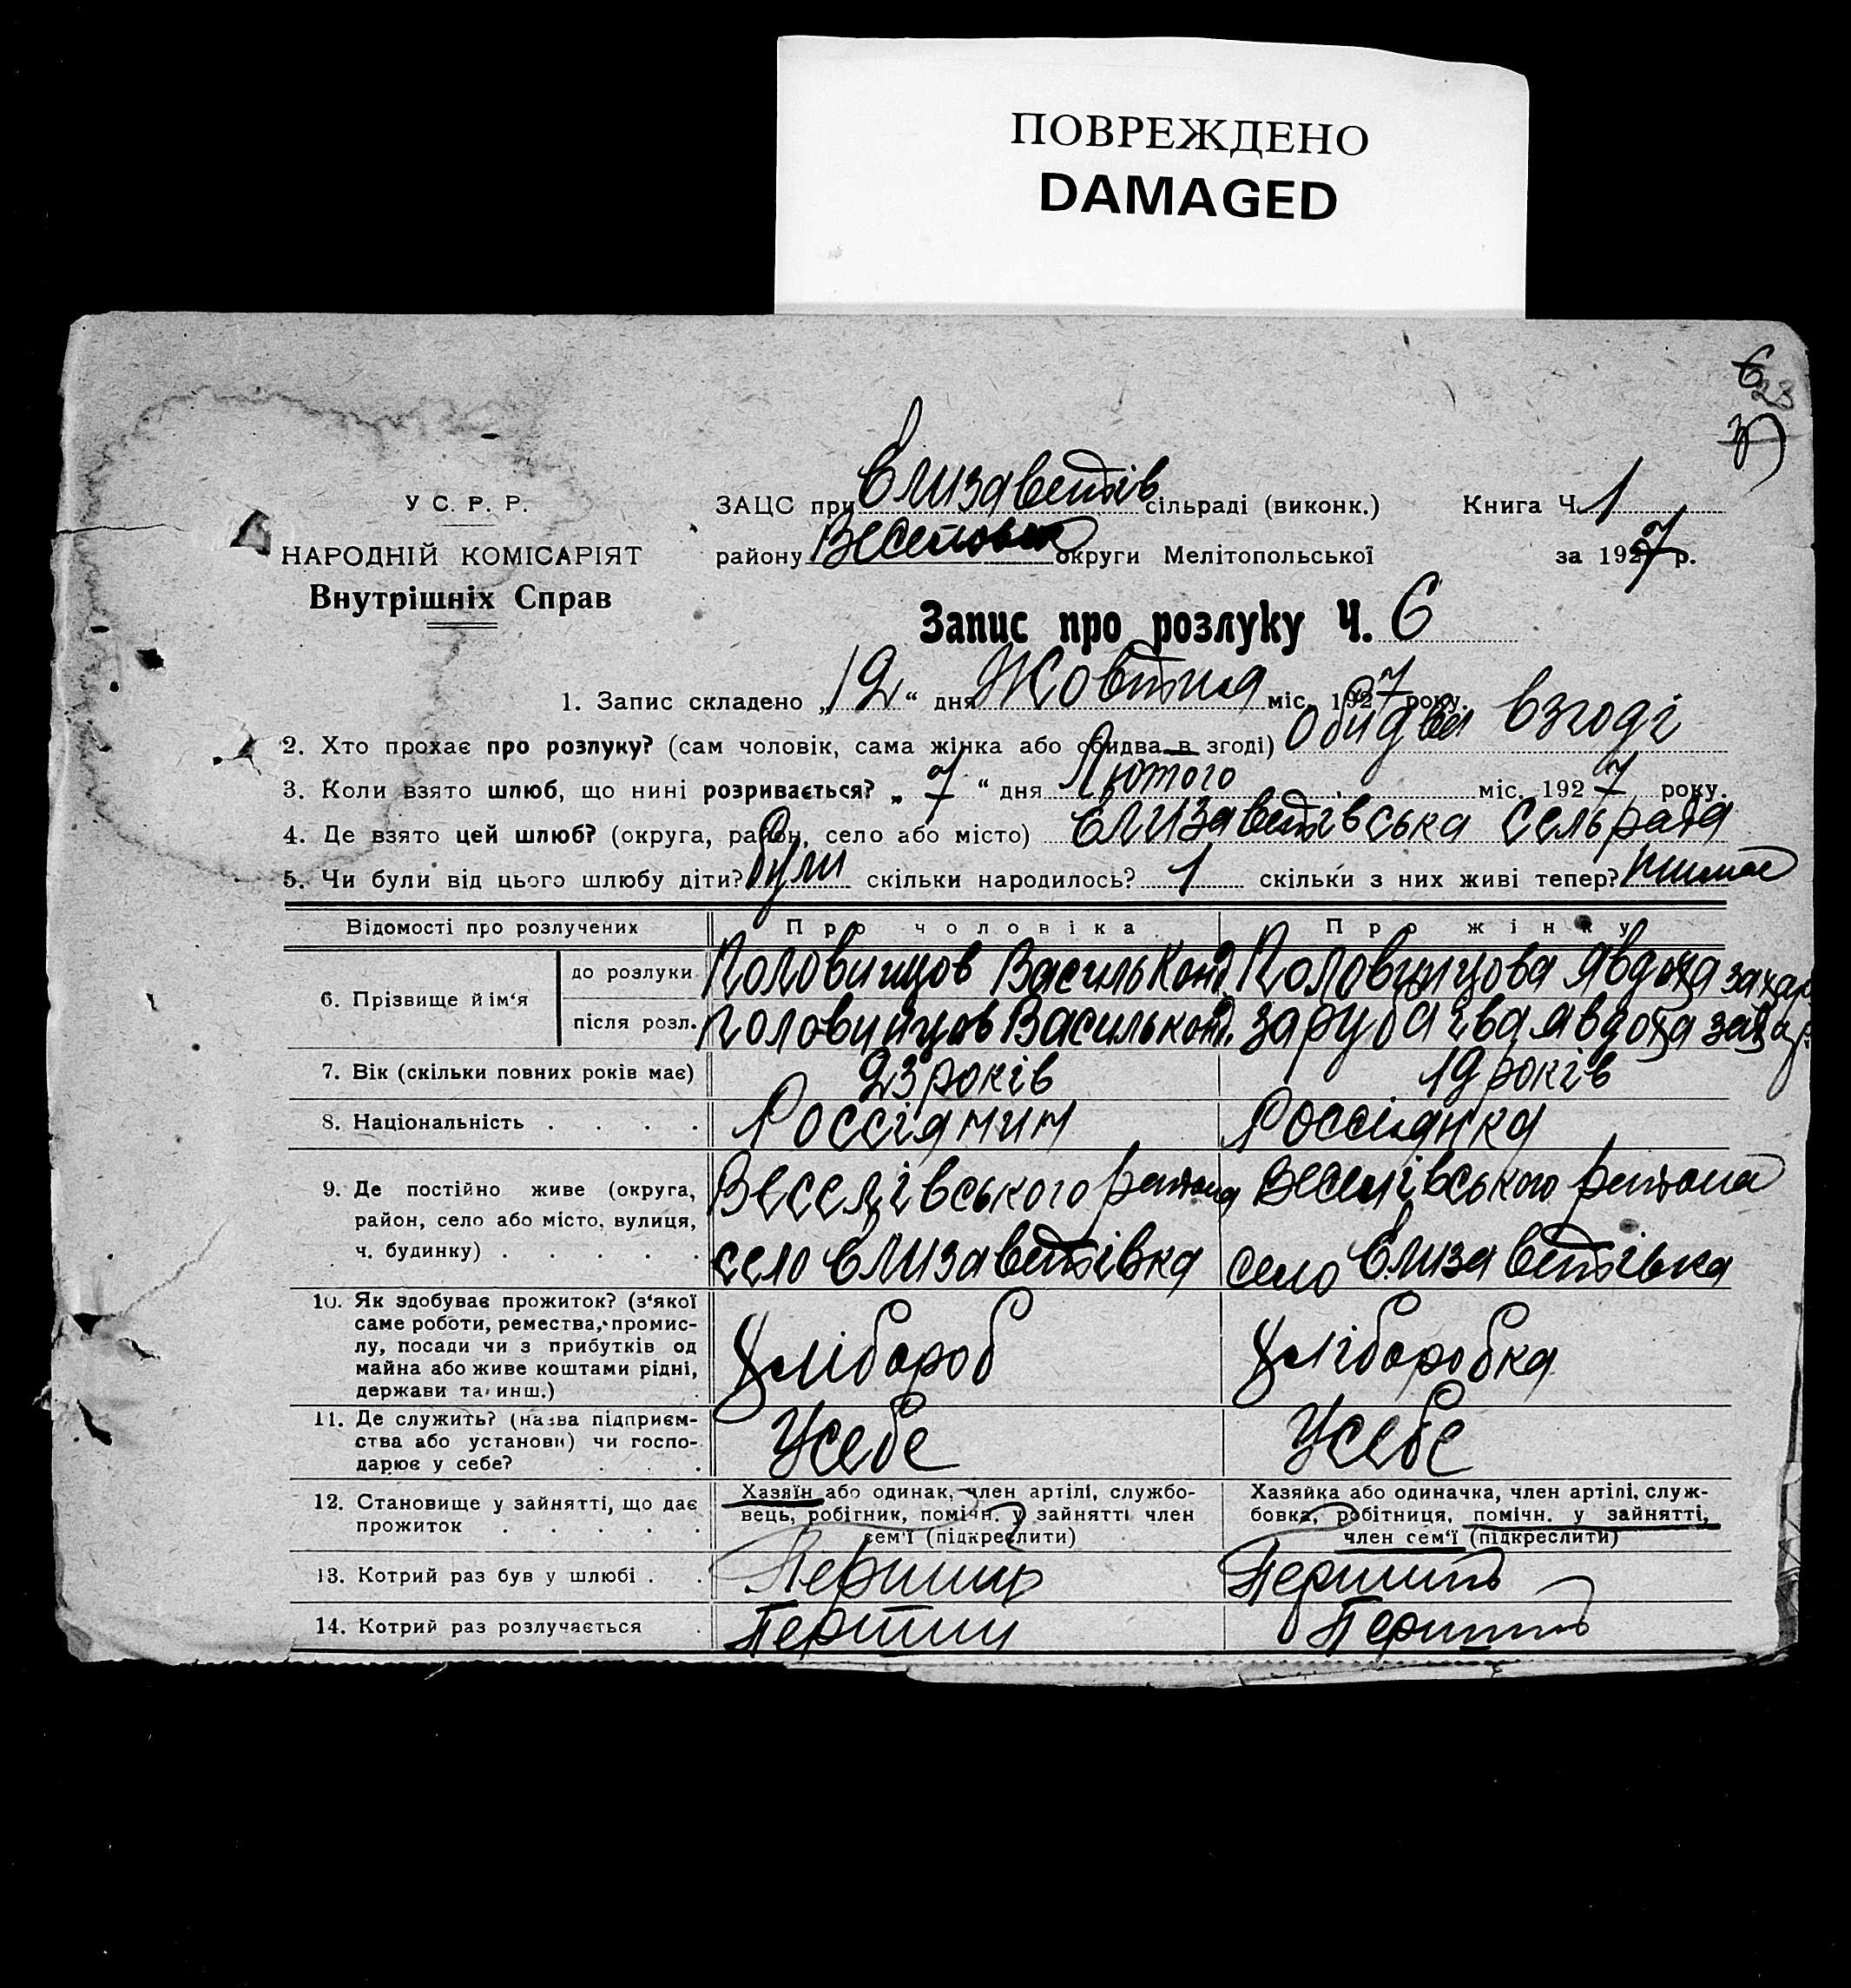 ПОВРЕЖДЕНО
DAMAGED
6
28
У С. Р. Р.
НАРОДНІЙ КОМІСАРІЯТ
Внутрішніх Справ
ЗАЦС при Єлизаветів сільраді (виконк.) Книга Ч. 1
району округи Мелітопольської за 1927 р.
Запис про розлуку Ч. 6
1. Запис складено „12“ дня Жовтня міс. 1927 року.
2. Хто прохає про розлуку? (сам чоловік, сама жінка або обидва в згоді) Обидва взгоді
3. Коли взято шлюб, що нині розривається? „7“ дня Лютого міс. 1927 року.
4. Де взято цей шлюб? (округа, район, село або місто) Єлизаветівська сельрада
5. Чи були від цього шлюбу діти? були скільки народилось? 1 скільки з них живі тепер?
Відомості про розлучених Про чоловіка Про жінку
6. Прізвище й ім‘я
до розлуки Половинцов Василь Конд. Половинцова Явдоха Захар
після розл. Половинцов Василь Конд. Явдоха Захар
7. Вік (скільки повних років має) 23 років 19 років
8. Національність . . . . Россіянин Россіянка
9. Де постійно живе (округа, район, село або місто, вулиця, ч. будинку) . . . . .
Веселівського района село Єлизаветівка
Веселівського района село Єлизаветівка
10. Як здобуває прожиток? (з‘якої саме роботи, ремества, промислу, посади чи з прибутків од майна або живе коштами рідні, держави та инш.)
Хлібороб Хліборобка
11. Де служить? (назва підприємства або установи) чи господарює у себе? . . .
Усебе Усебе
12. Становище у зайнятті, що дає прожиток . . . . .
Хазяїн або одинак, член артілі, службовець, робігник, помічн. у зайнятті член сем‘ї (підкреслити)
Хазяйка або одиначка, член артілі, службовка, робітниця, помічн. у зайнятті, член сем‘ї (підкреслити)
13. Котрий раз був у шлюбі . . Перший Перший
14. Котрий раз розлучається . Перший Перший